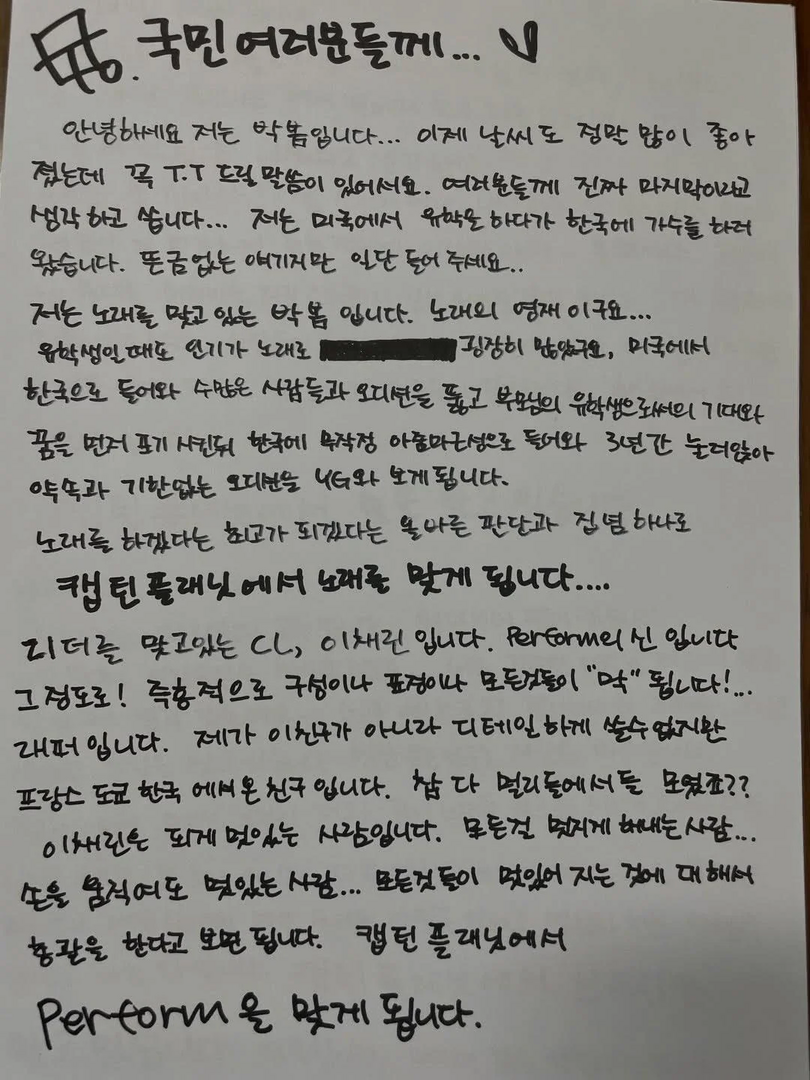 국민여러분들께...
안녕하세요 저는 박봄입니다... 이제 날씨도 정말 많이 좋아
졌는데 꼭 T.T 드릴말씀이 있어서요. 여러분들께 진짜 마지막이라고
생각하고 씁니다... 저는 미국에서 유학을 하다가 한국에 가수를 하러
왔습니다. 뜬금없는 얘기지만 일단 들어 주세요..
저는 노래를 맞고 있는 박봄 입니다. 노래의 영재이구요...
유학생일때도 인기가 노래로 굉장히 많았구요, 미국에서
한국으로 들어와 수많은 사람들과 오디션을 뚫고 부모님의 유학생으로써의 기대와
꿈을 먼저 포기 시킨뒤 한국에 무작정 아줌마근성으로 들어와 3년간 눌러앉아
약속과 기한없는 오디션을 YG와 보게됩니다.
노래를 하겠다는 최고가 되겠다는 올바른 판단과 집념 하나로
캡틴플래닛에서 노래를 맞게 됩니다....
리더를 맞고있는 CL, 이채린입니다. Perform의 신 입니다
그정도로! 즉흥적으로 구성이나 표정이나 모든것들이 "막" 됩니다!...
래퍼입니다. 제가 이친구가 아니라 디테일하게 쓸수없지만
프랑스 도쿄 한국 에서온친구입니다. 참 다 멀리들에서들 모였죠??
이채린은 되게멋있는 사람입니다. 모든걸 멋지게 해내는사람...
손을 움직여도 멋있는사람... 모든것들이 멋있어 지는 것에 대해서
총괄을 한다고 보면 됩니다. 캡틴플래닛에서
Perform을 맞게 됩니다.